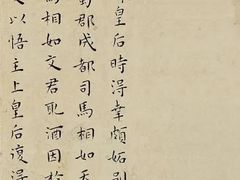 皇后時得幸頗妬別
郡成都司馬相如天
相如文君取酒因於
以悟主上皇后復得